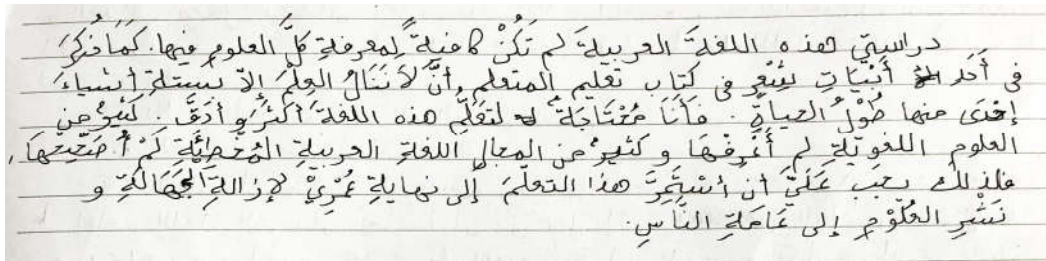 دراستي هذه اللغةَ العربيةَ لم تَكُنْ كافيةً لِمعرفةِ كلَّ العلومِ فيها. كَمَا ذُكِرَ
في أَحَدِ أَبْيَاتِ شِعْرٍ في كتاب تعليم المتعلم, أَنْ لاَ تَنَالُ العِلْمَ إلاّ بستةِ أشياءَ
إحْدَى منها طُوْلُ الحياةِ. فَأَنَا مُحْتَاجَةٌ لتَعَلُّمِ هذه اللغةِ أكْثَرَ وَ أدَقَّ. كَثِيْرٌ من
العلوم اللغويّةِ لم أَعْرِفْهَا و كثيرٌ من المجالِ اللغةِ العربيةِ المُخْطِئَةِ لَمْ أُصَحِّحْهَا,
فلذلك يجب عَلَيَّ أن أَسْتَمِرَّ هذا التعلّمَ إلى نهايةِ عُمْرِيْ لإزالةِ الجَهَالَةِ و
نَشْرِ العُلُوْمِ إلى عَامَةِ النَّاسِ.